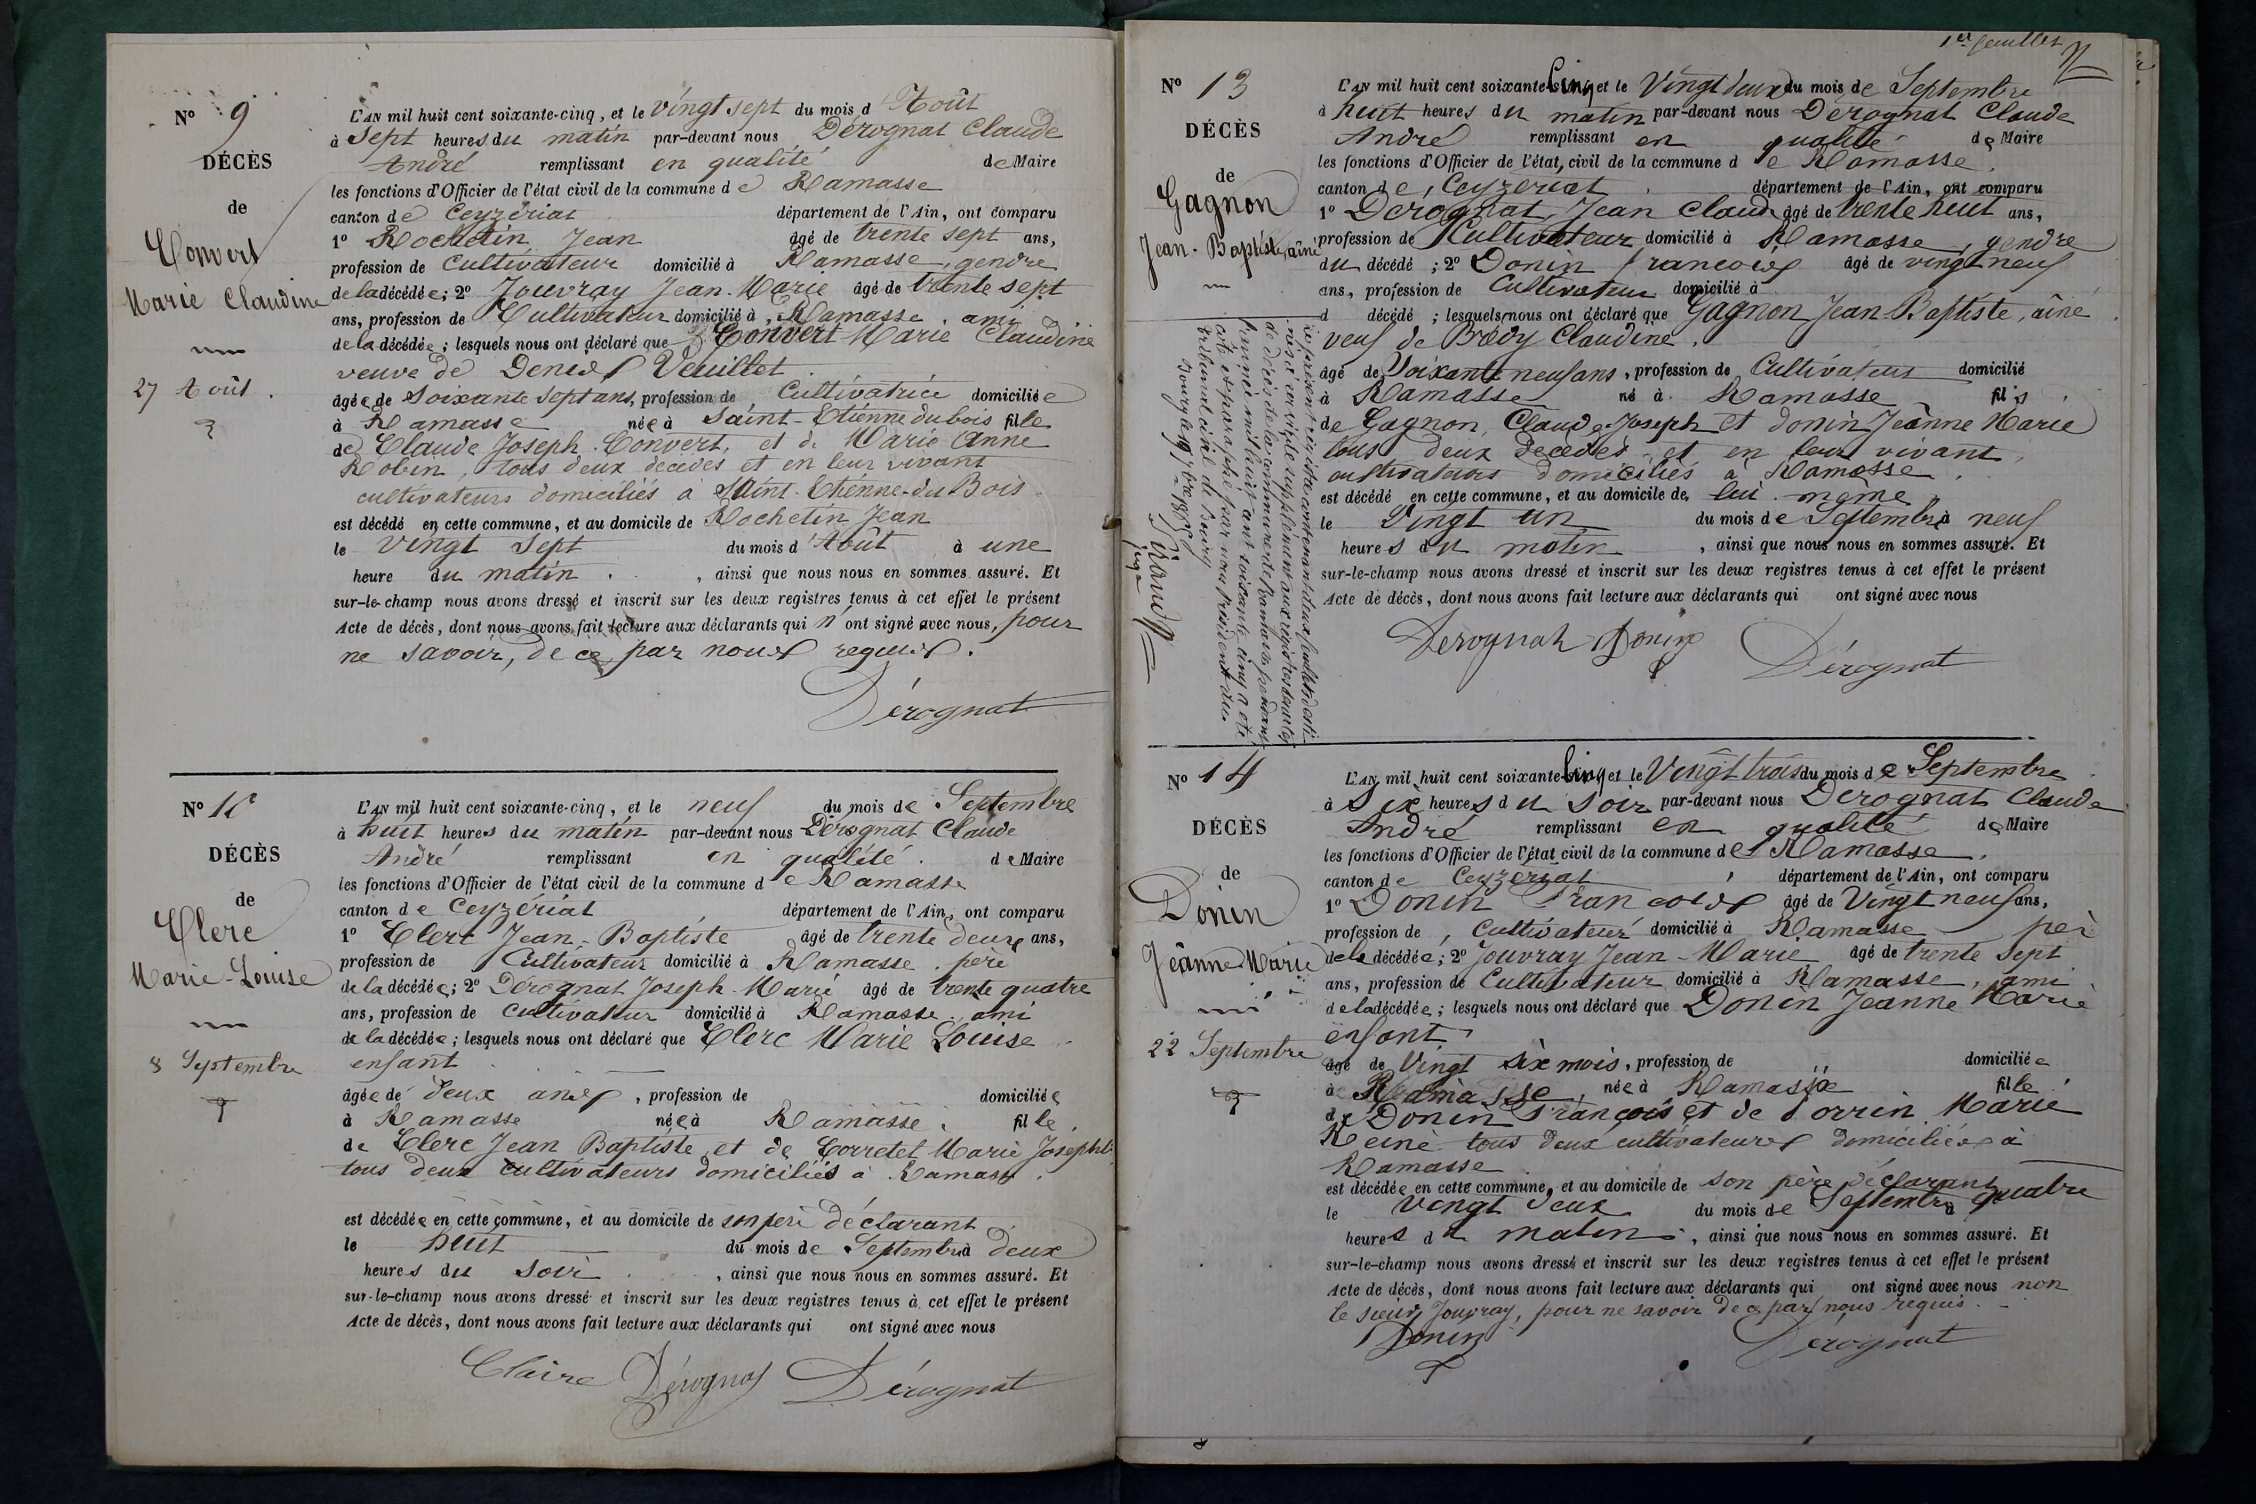 N° 9
DÉCÈS
de
Convert
Marie Claudine
27 Août.
L'AN mil huit cent soixante-cinq, et le vingt sept du mois d'Août
à Sept heures du matin par-devant nous Dérognat Claude
André remplissant en qualité de Maire
les fonctions d'Officier de l'état civil de la commune de Ramasse
canton de Ceyzériat département de l'Ain, ont comparu
1° Rochetin Jean âgé de trente sept ans,
profession de cultivateur domicilié à Ramasse, gendre
de la décédée; 2° Jouvray Jean-Marie âgé de trente sept
ans, profession de Cultivateur domicilié à Ramasse, ami
de la décédée; lesquels nous ont déclaré que Convert Marie Claudine
veuve de Denis Veuillet
âgée de soixante sept ans, profession de Cultivatrice domiciliée
à Ramasse née à Saint-Etienne du bois fille
de Claude Joseph Convert, et de Marie Anne
Robin, tous deux décédés et en leur vivant
cultivateurs domiciliés à Saint-Etienne-du-Bois
est décédé en cette commune, et au domicile de Rochetin Jean
le vingt Sept du mois d'Août à une
heure du matin, ainsi que nous nous en sommes assuré. Et
sur-le-champ nous avons dressé et inscrit sur les deux registres tenus à cet effet le présent
Acte de décès, dont nous avons fait lecture aux déclarants qui n'ont signé avec nous, pour
ne savoir, de ce par nous requis.
Dérognat
N° 10
DÉCÈS
de
Clerc
Marie-Louise
8 Septembre
L'AN mil huit cent soixante-cinq, et le neuf du mois de Septembre
à huit heures du matin par-devant nous Dérognat Claude
André remplissant en qualité de Maire
les fonctions d'Officier de l'état civil de la commune de Ramasse
canton de Ceyzériat département de l'Ain, ont comparu
1° Clerc Jean-Baptiste âgé de trente deux ans,
profession de Cultivateur domicilié à Ramasse, père
de la décédée; 2° Dérognat Joseph-Marie âgé de trente quatre
ans, profession de Cultivateur domicilié à Ramasse, ami
de la décédée; lesquels nous ont déclaré que Clerc Marie Louise
enfant
âgée de deux ans, profession de domiciliée
à Ramasse née à Ramasse, fille
de Clerc Jean Baptiste et de Corretet Marie Josephte
tous deux cultivateurs domiciliés à Ramasse.
est décédée en cette commune, et au domicile de son père déclarant
le huit du mois de Septembre à deux
heures du soir, ainsi que nous nous en sommes assuré. Et
sur-le-champ nous avons dressé et inscrit sur les deux registres tenus à cet effet le présent
Acte de décès, dont nous avons fait lecture aux déclarants qui ont signé avec nous
Claire Dérognat Dérognat
1er feuillet
N° 13
DÉCÈS
de
Gagnon
Jean-Baptiste, aîné
Le présent registre contenant deux feuillets desti-
nés à servir de supplément aux registres courants
de décès de la commune de Ramasse pendant
l'année mil huit cent soixante cinq a été
coté et paraphé par nous président du
tribunal civil de Bourg
Bourg le 19 7bre 1865
juge
L'AN mil huit cent soixante-Cinq et le Vingt deux du mois de Septembre
à huit heures du matin par-devant nous Dérognat Claude
André remplissant en qualité de Maire
les fonctions d'Officier de l'état, civil de la commune de Ramasse.
canton de Ceyzériat département de l'Ain, ont comparu
1° Dérognat, Jean Claude âgé de trente huit ans,
profession de Cultivateur domicilié à Ramasse, gendre
du décédé; 2° Donin François âgé de vingt neuf
ans, profession de Cultivateur domicilié à
d décédé; lesquels nous ont déclaré que Gagnon Jean Baptiste, aîné
veuf de Brédy Claudine.
âgé de soixante neuf ans, profession de Cultivateur domicilié
à Ramasse né à Ramasse fils
de Gagnon, Claude Joseph et donin Jeanne Marie
tous deux décédés et en leur vivant,
cultivateurs domiciliés à Ramasse.
est décédé en cette commune, et au domicile de lui-même
le Vingt un du mois de Septembre à neuf
heures du matin, ainsi que nous nous en sommes assuré. Et
sur-le-champ nous avons dressé et inscrit sur les deux registres tenus à cet effet le présent
Acte de décès, dont nous avons fait lecture aux déclarants qui ont signé avec nous
Derognat Donin Dérognat
N° 14
DÉCÈS
de
Donin
Jeanne Marie
22 Septembre
L'AN mil huit cent soixante-Cinq et le Vingt trois du mois de Septembre
à Six heures du soir par-devant nous Dérognat Claude
André remplissant en qualité de Maire
les fonctions d'Officier de l'état civil de la commune de Ramasse.
canton de Ceyzériat département de l'Ain, ont comparu
1° Donin François âgé de Vingt neuf ans,
profession de Cultivateur domicilié à Ramasse père
de la décédée; 2° Jouvray Jean-Marie âgé de trente sept
ans, profession de Cultivateur domicilié à Ramasse, ami
de la décédée; lesquels nous ont déclaré que Donin Jeanne Marie
enfant
âgé de Vingt six mois, profession de domiciliée
à Ramasse née à Ramasse fille
de Donin François et de dorrin Marie
Reine tous deux cultivateurs domiciliés à
Ramasse
est décédée en cette commune, et au domicile de son père déclarant
le Vingt deux du mois de Septembre à quatre
heures du matin, ainsi que nous nous en sommes assuré. Et
sur-le-champ nous avons dressé et inscrit sur les deux registres tenus à cet effet le présent
Acte de décès, dont nous avons fait lecture aux déclarants qui ont signé avec nous non
le sieur Jouvray, pour ne savoir de ce par nous requis.
Donin Dérognat